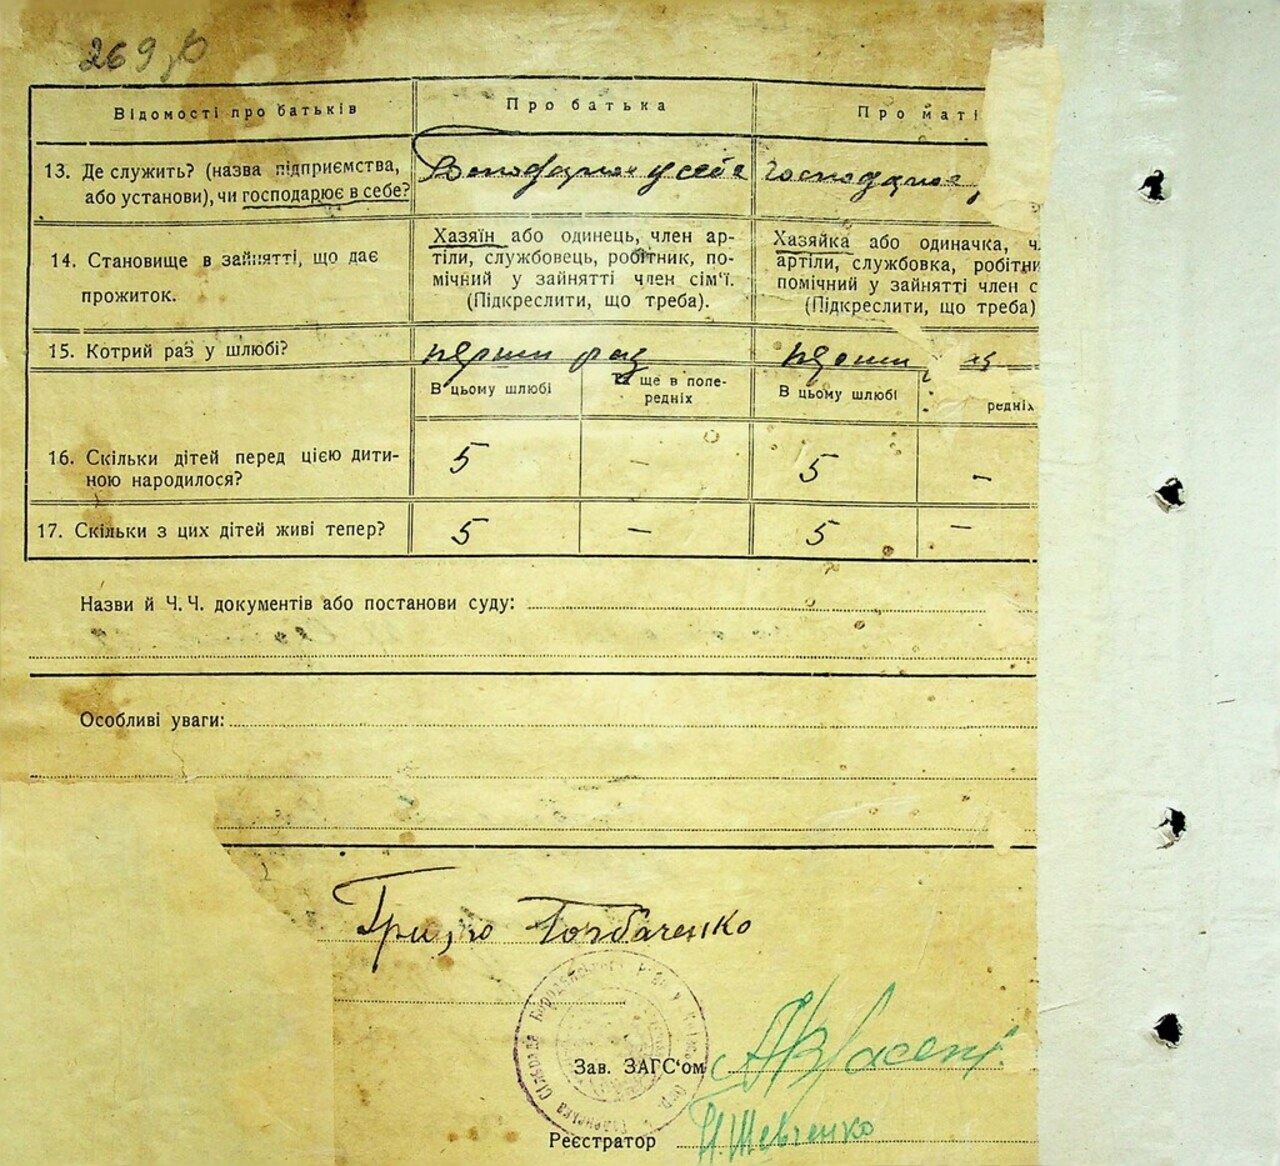 269
Відомості про батьків
Про батька
Про маті
13. Де служить? (назва підприємства,
або установи), чи господарює в себе?
Господарює у себе
Господарює,
14. Становище в зайнятті, що дає
прожиток.
Хазяїн або одинець, член ар-
тілі, службовець, робітник, по-
мічний у зайнятті член сім'ї.
(Підкреслити, що треба).
Хазяйка або одиначка, ч
артіли, службовка, робітни
помічний у зайнятті член с
(Підкреслити, що треба)
15. Котрий раз у шлюбі?
перший раз
перший
В цьому шлюбі
ще в попе-
редніх
В цьому шлюбі
редніх
16. Скільки дітей перед цією дити-
ною народилося?
5
–
5
–
17. Скільки з цих дітей живі тепер?
5
–
5
–
Назви й Ч. Ч. документів або постанови суду:
Особливі уваги:
Горбаченко
Зав. ЗАГС'ом
Реєстратор
Шевченко